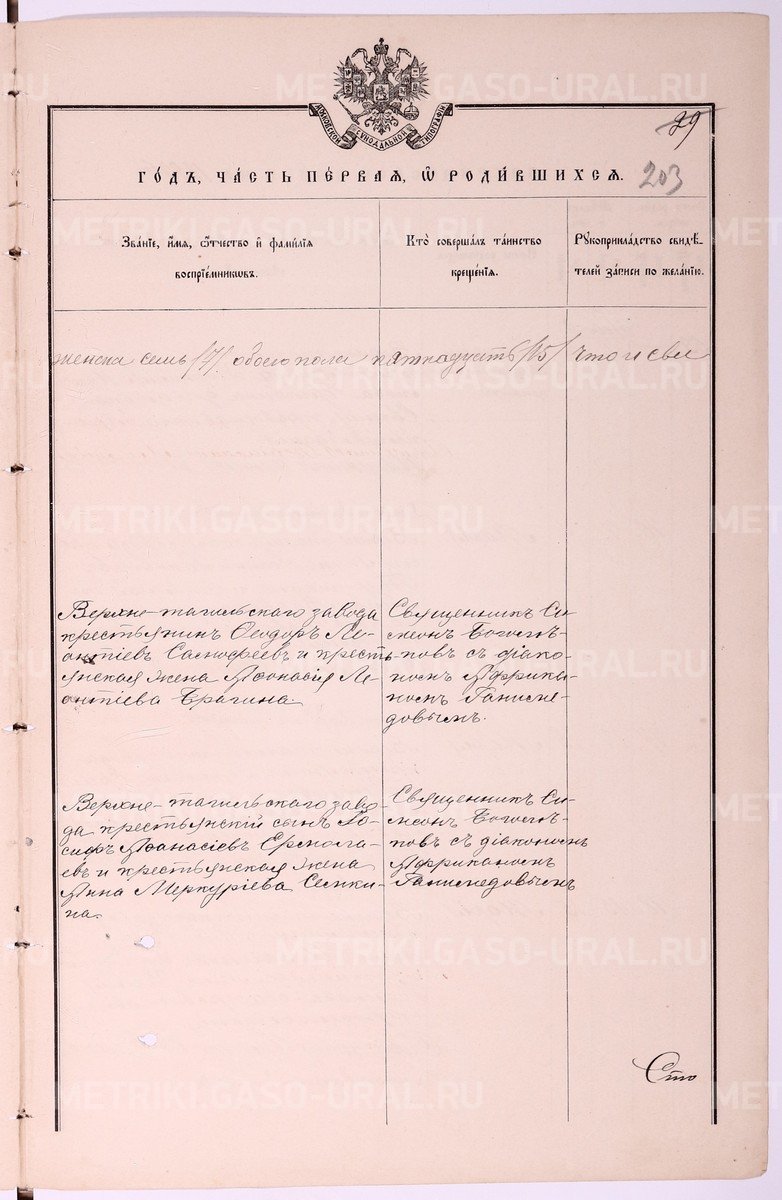 МОСКОВСКОЙ СѴНОДАЛЬНОЙ ТИПОГРАФІИ
29
ГО́ДЪ, ЧА́СТЬ ПЕ́РВАЯ, Ѿ РОДИ́ВШИХСЯ.
203
Зва́нїе, и҆́мя, ѻ҆́тчество и҆ фами́лїя
воспрїе́мниковъ.
Кто̀ соверша́лъ та́инство
креще́нїя.
Рꙋкоприкла́дство свидѣ́-
телей за́писи по жела́нїю.
женска семь /7/ обоего пола пятнадцать /15/ что и сви
Верхне-тагильскаго завода
крестьянинъ Ѳеодоръ Ле-
онтіевъ Самофеевъ и кресть-
янская жена Аѳанасія Ле-
онтіева Брагина
Священникъ Си-
меонъ Боголе-
повъ съ діако-
номъ Африка-
номъ Ганиме-
довымъ.
Верхне-тагильскаго заво-
да крестьянскій сынъ Іо-
сифъ Аѳанасіевъ Ермола-
евъ и крестьянская жена
Анна Меркуріева Семки-
на.
Священникъ Си-
меонъ Боголе-
повъ съ діакономъ
Африканомъ
Ганимедовымъ
Сто
METRIKI.GASO-URAL.RU